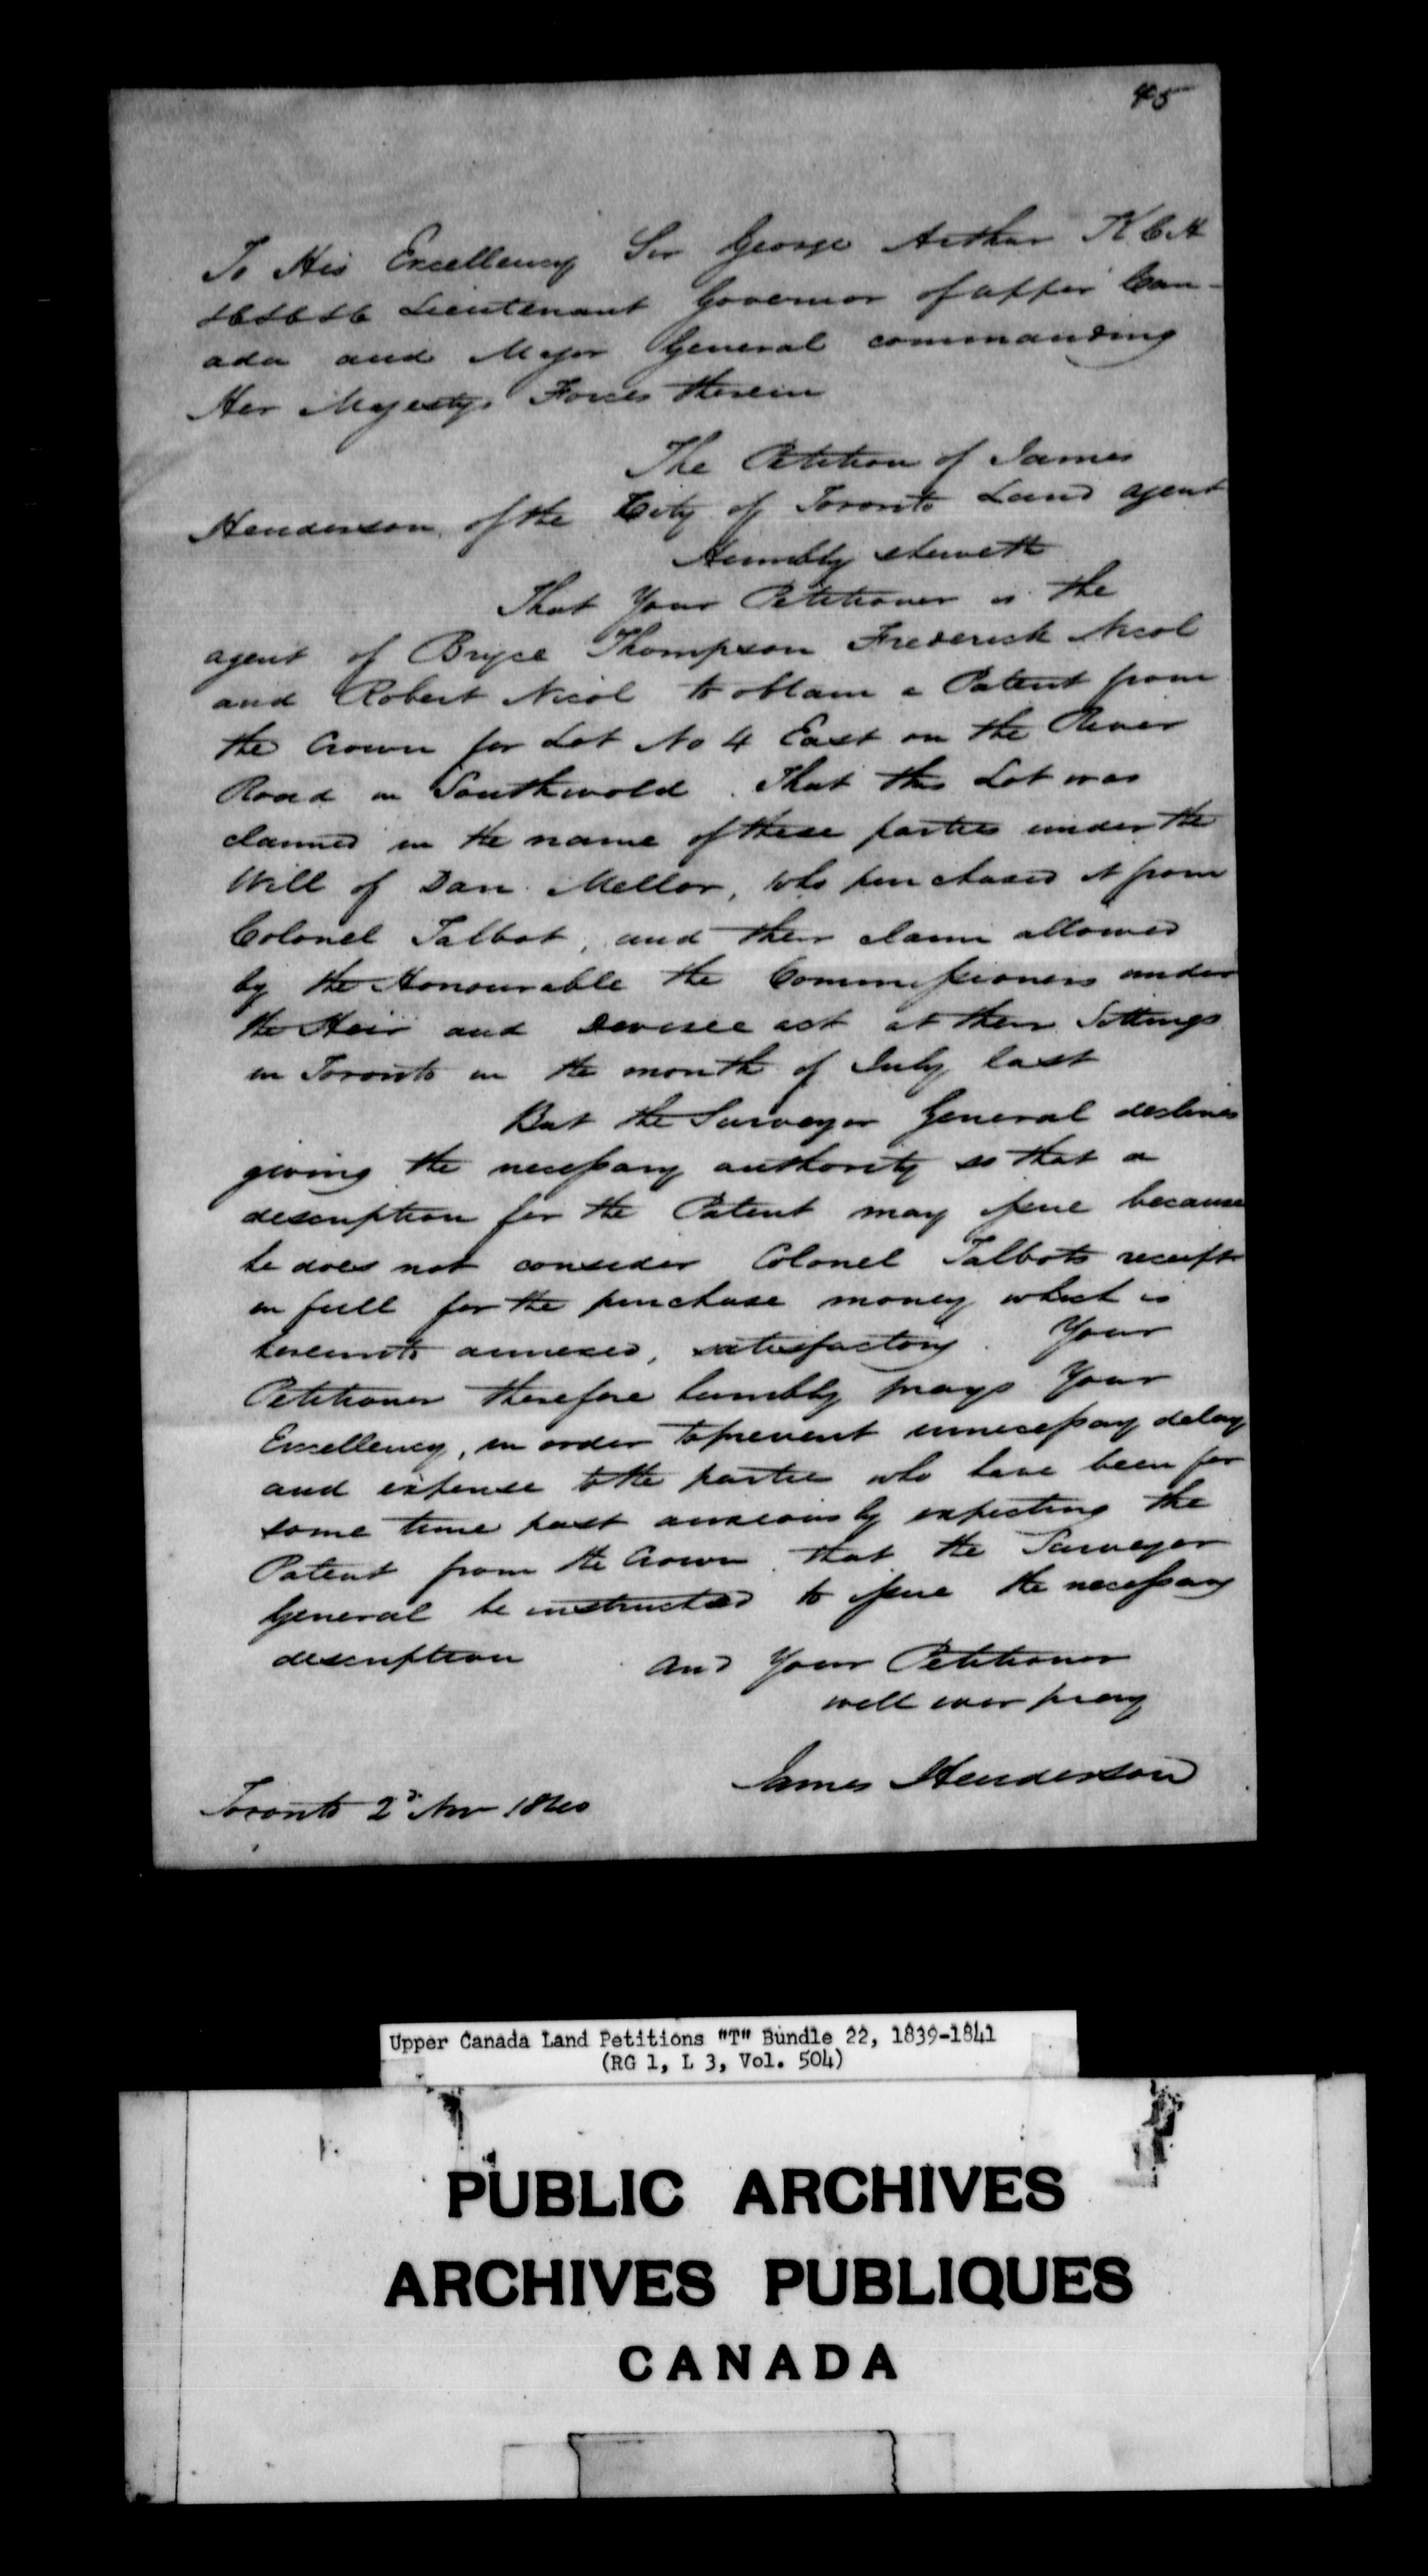 45
To His Excellency Sir George Arthur K C H
&c &c &c Lieutenant Governor of Upper Can-
ada and Major General commanding
Her Majestys Forces therein
The Petition of James
Henderson of the City of Toronto Land agent
Humbly sheweth
That Your Petitioner is the
agent of Bryce Thompson Frederick Nicol
and Robert Nicol to obtain a Patent from
the Crown for Lot No 4 East on the River
Road in Southwold. That this Lot was
claimed in the name of these parties under the
Will of Dan Mellor, who purchased it from
Colonel Talbot, and their claim allowed
by the Honourable the Commissioners under
the Heir and Devisee act at their Sittings
in Toronto in the month of July last
But the Surveyor General declines
giving the necessary authority so that a
description for the Patent may issue because
he does not consider Colonel Talbots receipt
in full for the purchase money which is
hereunto annexed, satisfactory. Your
Petitioner therefore humbly prays Your
Excellency, in order to prevent unnecessary delay
and expense to the parties who have been for
some time past anxiously expecting the
Patent from the Crown that the Surveyor
General be instructed to issue the necessary
description and Your Petitioner
will ever pray
James Henderson
Toronto 2d Nov 1840
Upper Canada Land Petitions "T" Bundle 22, 1839-1841
(RG 1, L 3, Vol. 504)
PUBLIC ARCHIVES
ARCHIVES PUBLIQUES
CANADA